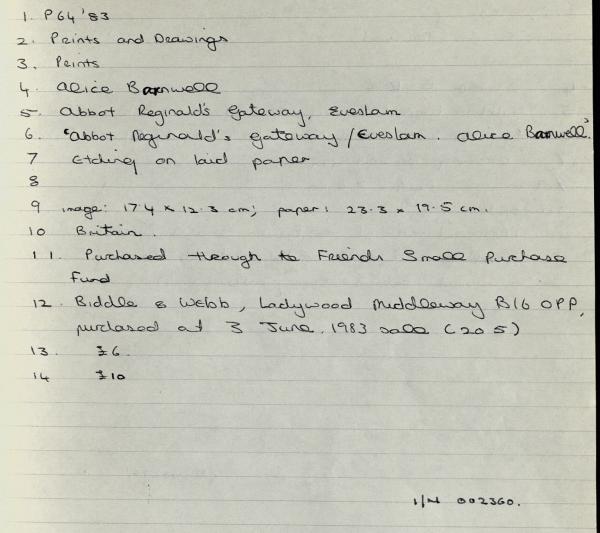 1. P64 '83
2. Prints and Drawings
3. Prints
4. Alice Barnwell
5. Abbot Reginald's Gateway, Evesham
6. 'Abbot Reginald's gateway / Evesham. Alice Barnwell'
7 Etching on laid paper
8
9 image: 17.4 x 12.3 cm; paper: 23.3 x 19.5 cm.
10 Britain.
11. Purchased through to Friends Small Purchase
Fund
12. Biddle & Webb, Ladywood Middleway B16 0PP,
purchased at 3 June. 1983 sale (205)
13. £6.
14 £10
I/N 002360.